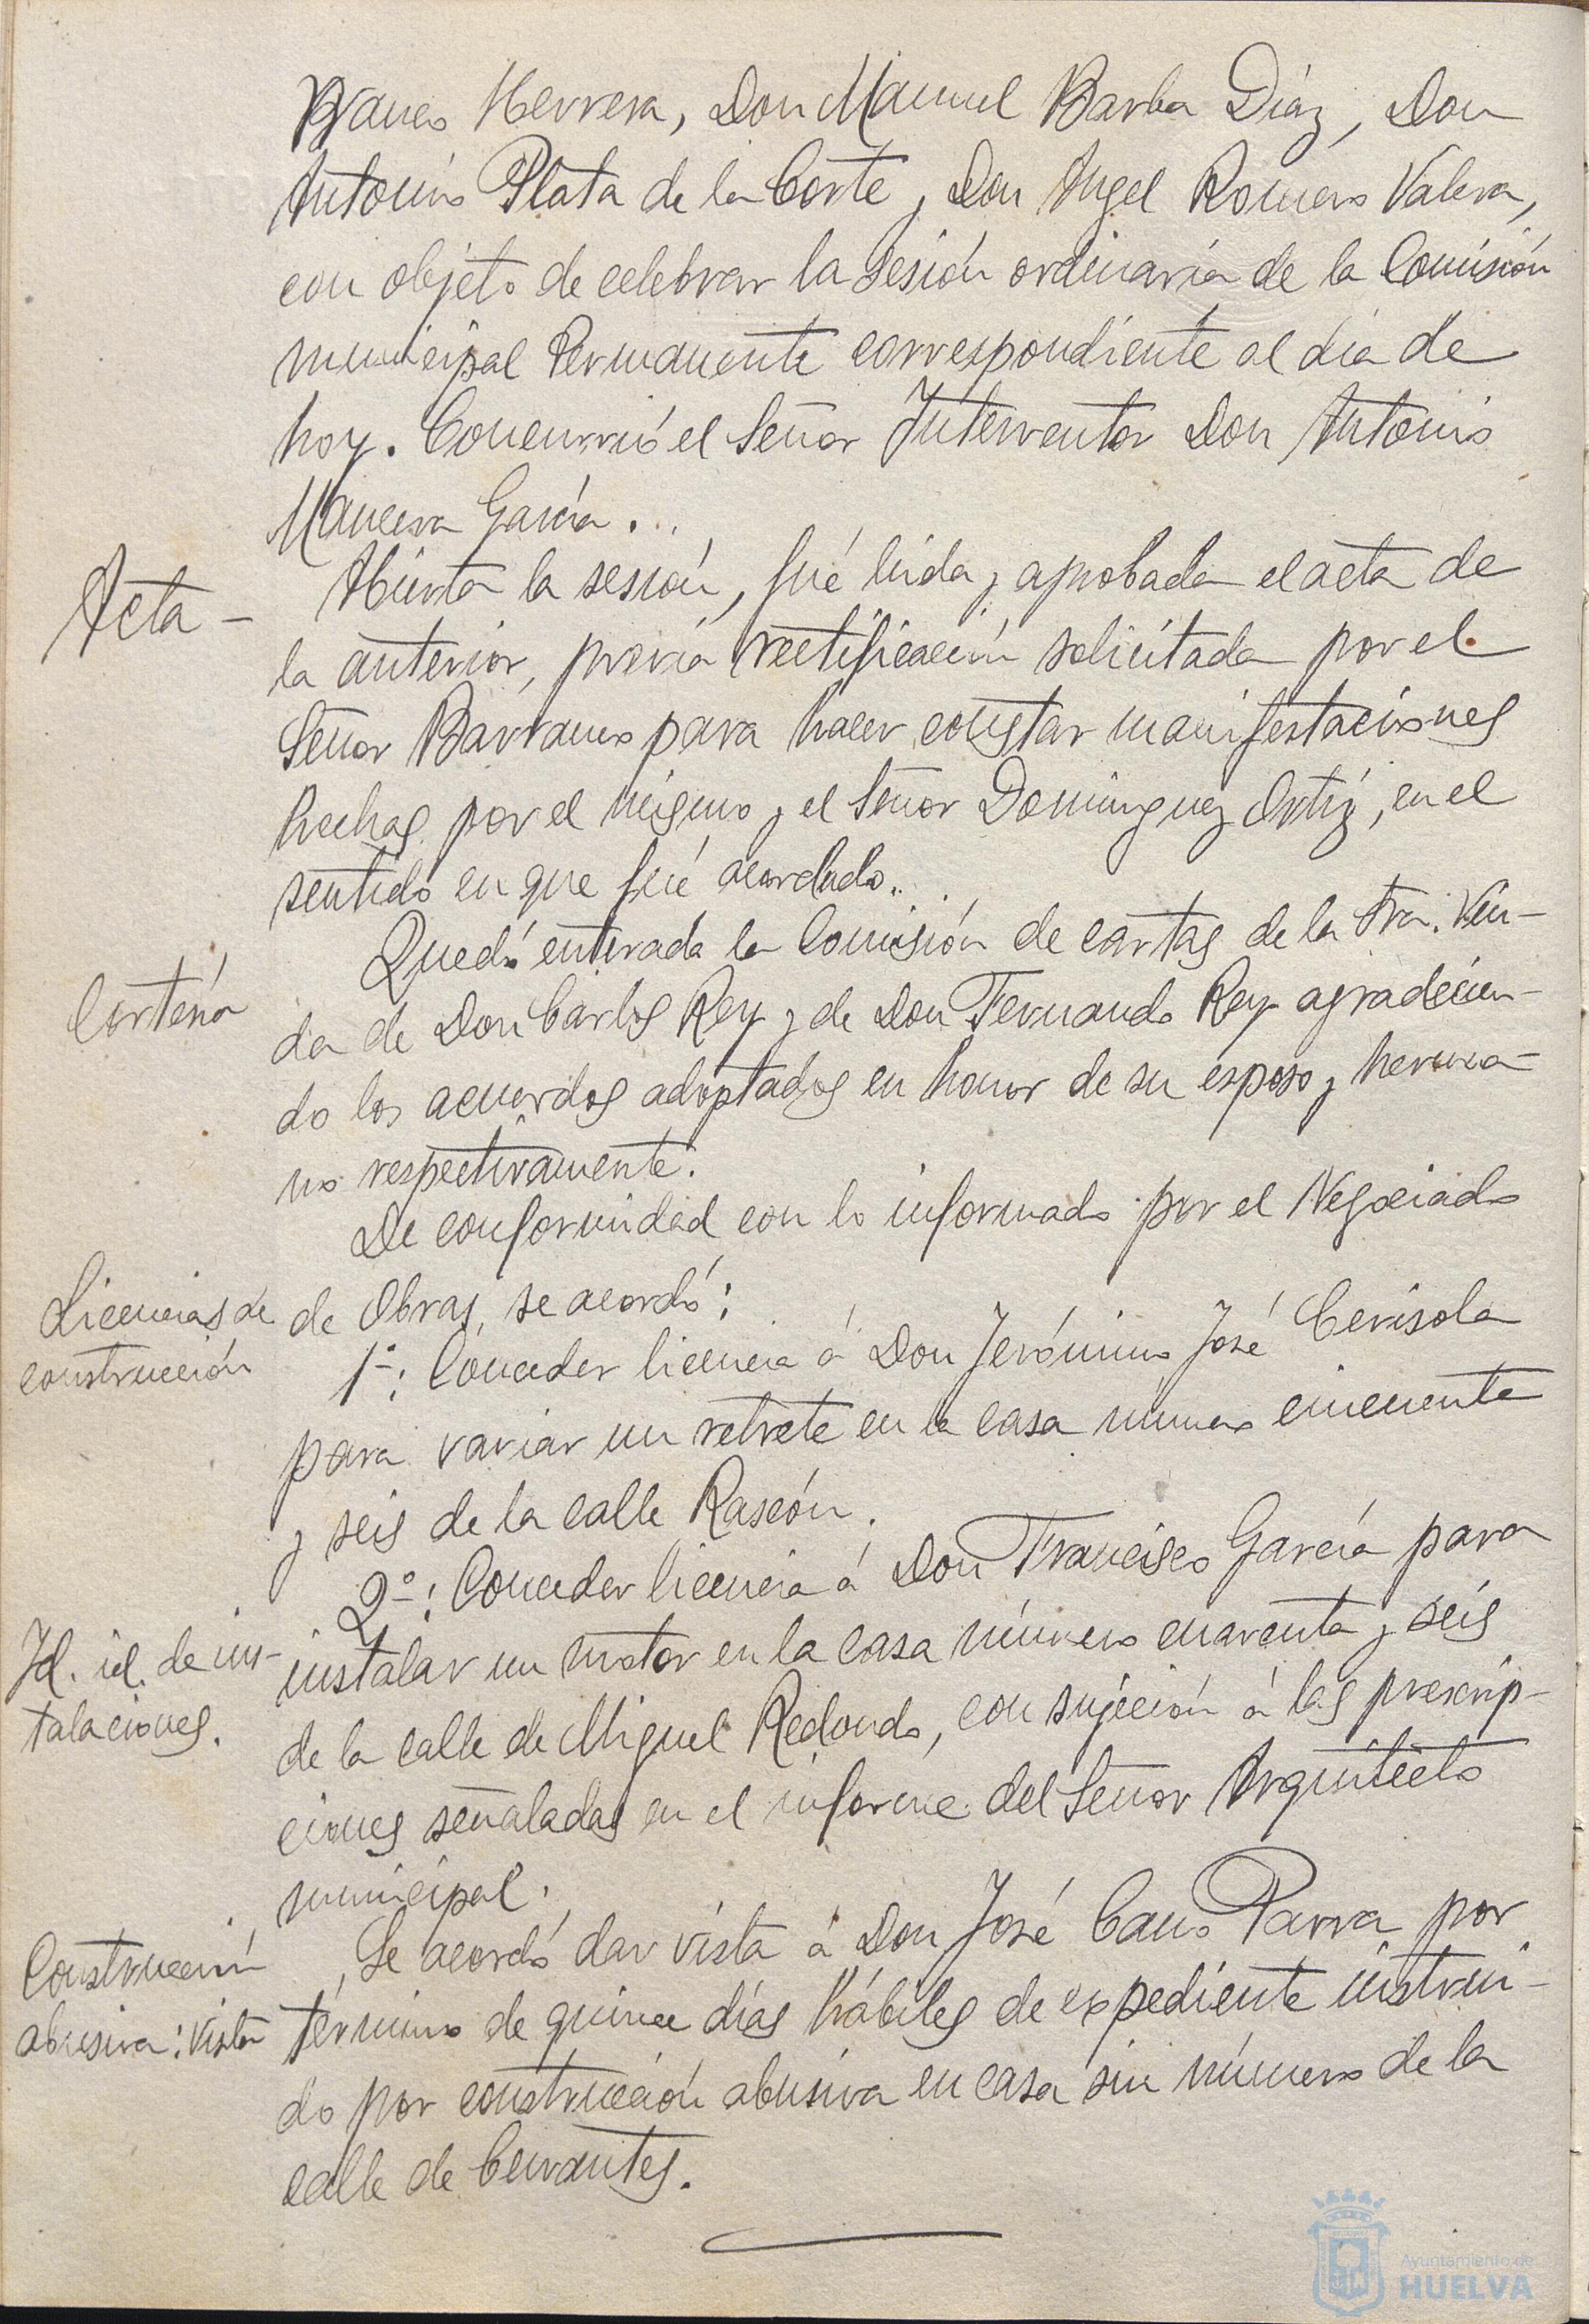 Blanco Herrera, Don Manuel Barba Díaz, Don
Antonio Plata de la Corte y Don Angel Romero Valera,
con objeto de celebrar la sesión ordinaria de la Comisión
municipal Permanente correspondiente al día de
hoy. Concurrió el Señor Interventor Don Antonio
Mancera García.
Acta -
Abierta la sesión, fué leida y aprobada el acta de
la anterior, previa rectificación solicitada por el
Señor Barranco para hacer constar manifestaciones
hechas por el mismo y el Señor Dominguez Ortíz, en el
sentido en que fué acordado.
Cartería
Quedó enterada la Comisión de cartas de la Sra. Viu-
da de Don Carlos Rey y de Don Fernando Rey agradecien-
do los acuerdos adoptados en honor de su esposo y herma-
no respectivamente.
De conformidad con lo informado por el Negociado
Licencias de
construcción
de Obras, se acordó:
1º: Conceder licencia á Don Jerónimo José Cerisola
para variar un retrete en la casa número cincuenta
y seis de la calle Rascón.
2º: Conceder licencia á Don Francisco García para
Id. id. de ins-
talaciones.
instalar un motor en la casa número cuarenta y seis
de la calle de Miguel Redondo, con sujeción á las prescrip-
ciones señaladas en el informe del Señor Arquitecto
municipal.
Construcción
abusiva: vista
Se acordó dar vista á Don José Cano Parra por
término de quince días hábiles de expediente instrui-
do por construcción abusiva en casa sin número de la
calle de Cervantes.
Ayuntamiento de
HUELVA